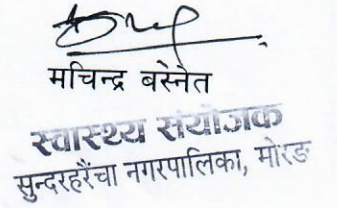 मचिन्द्र बस्नेत
स्वास्थ्य संयोजक
सुन्दरहरैंचा नगरपालिका, मोरङ